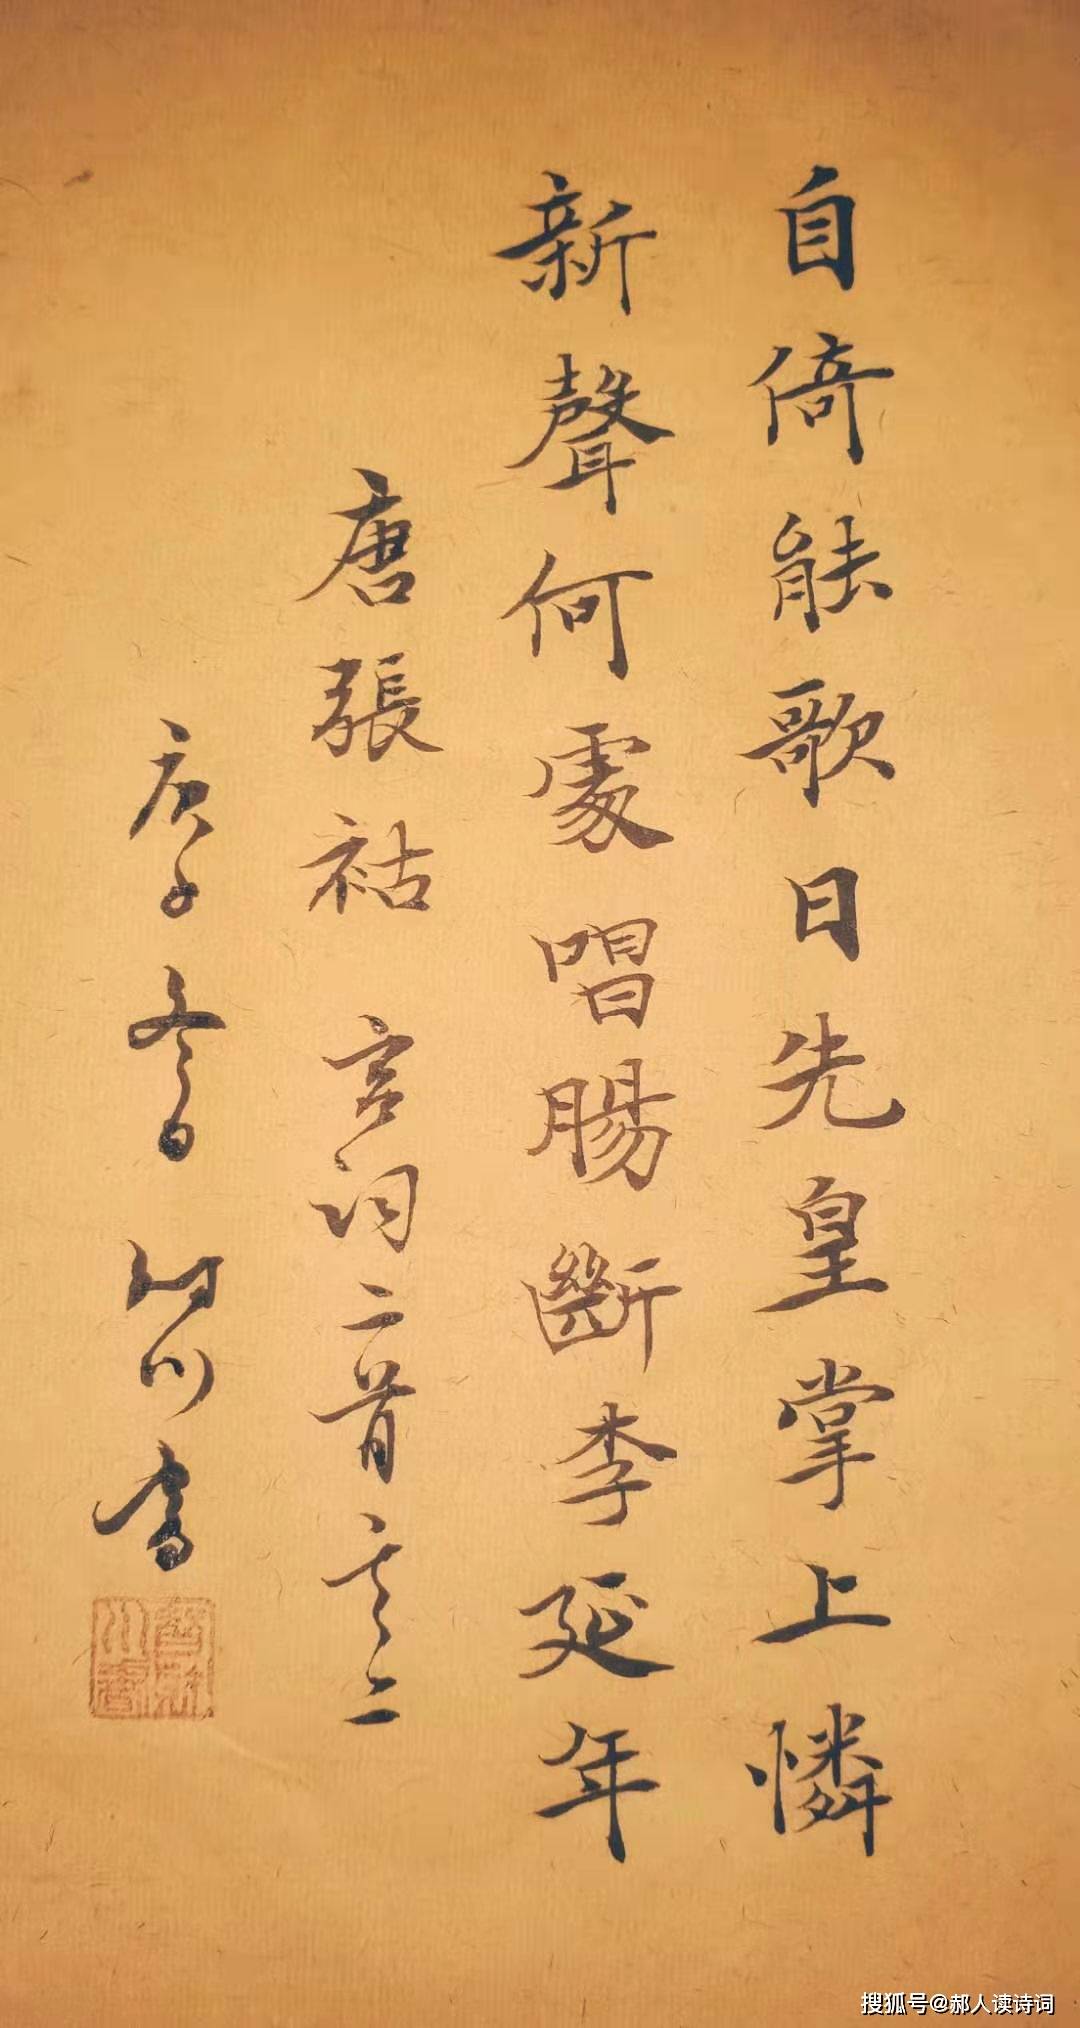 自倚能歌日先皇掌上憐
新聲何處唱腸斷李延年
唐張祜宮詞二首其二
庚子冬日財川書
搜狐号@郝人读诗词